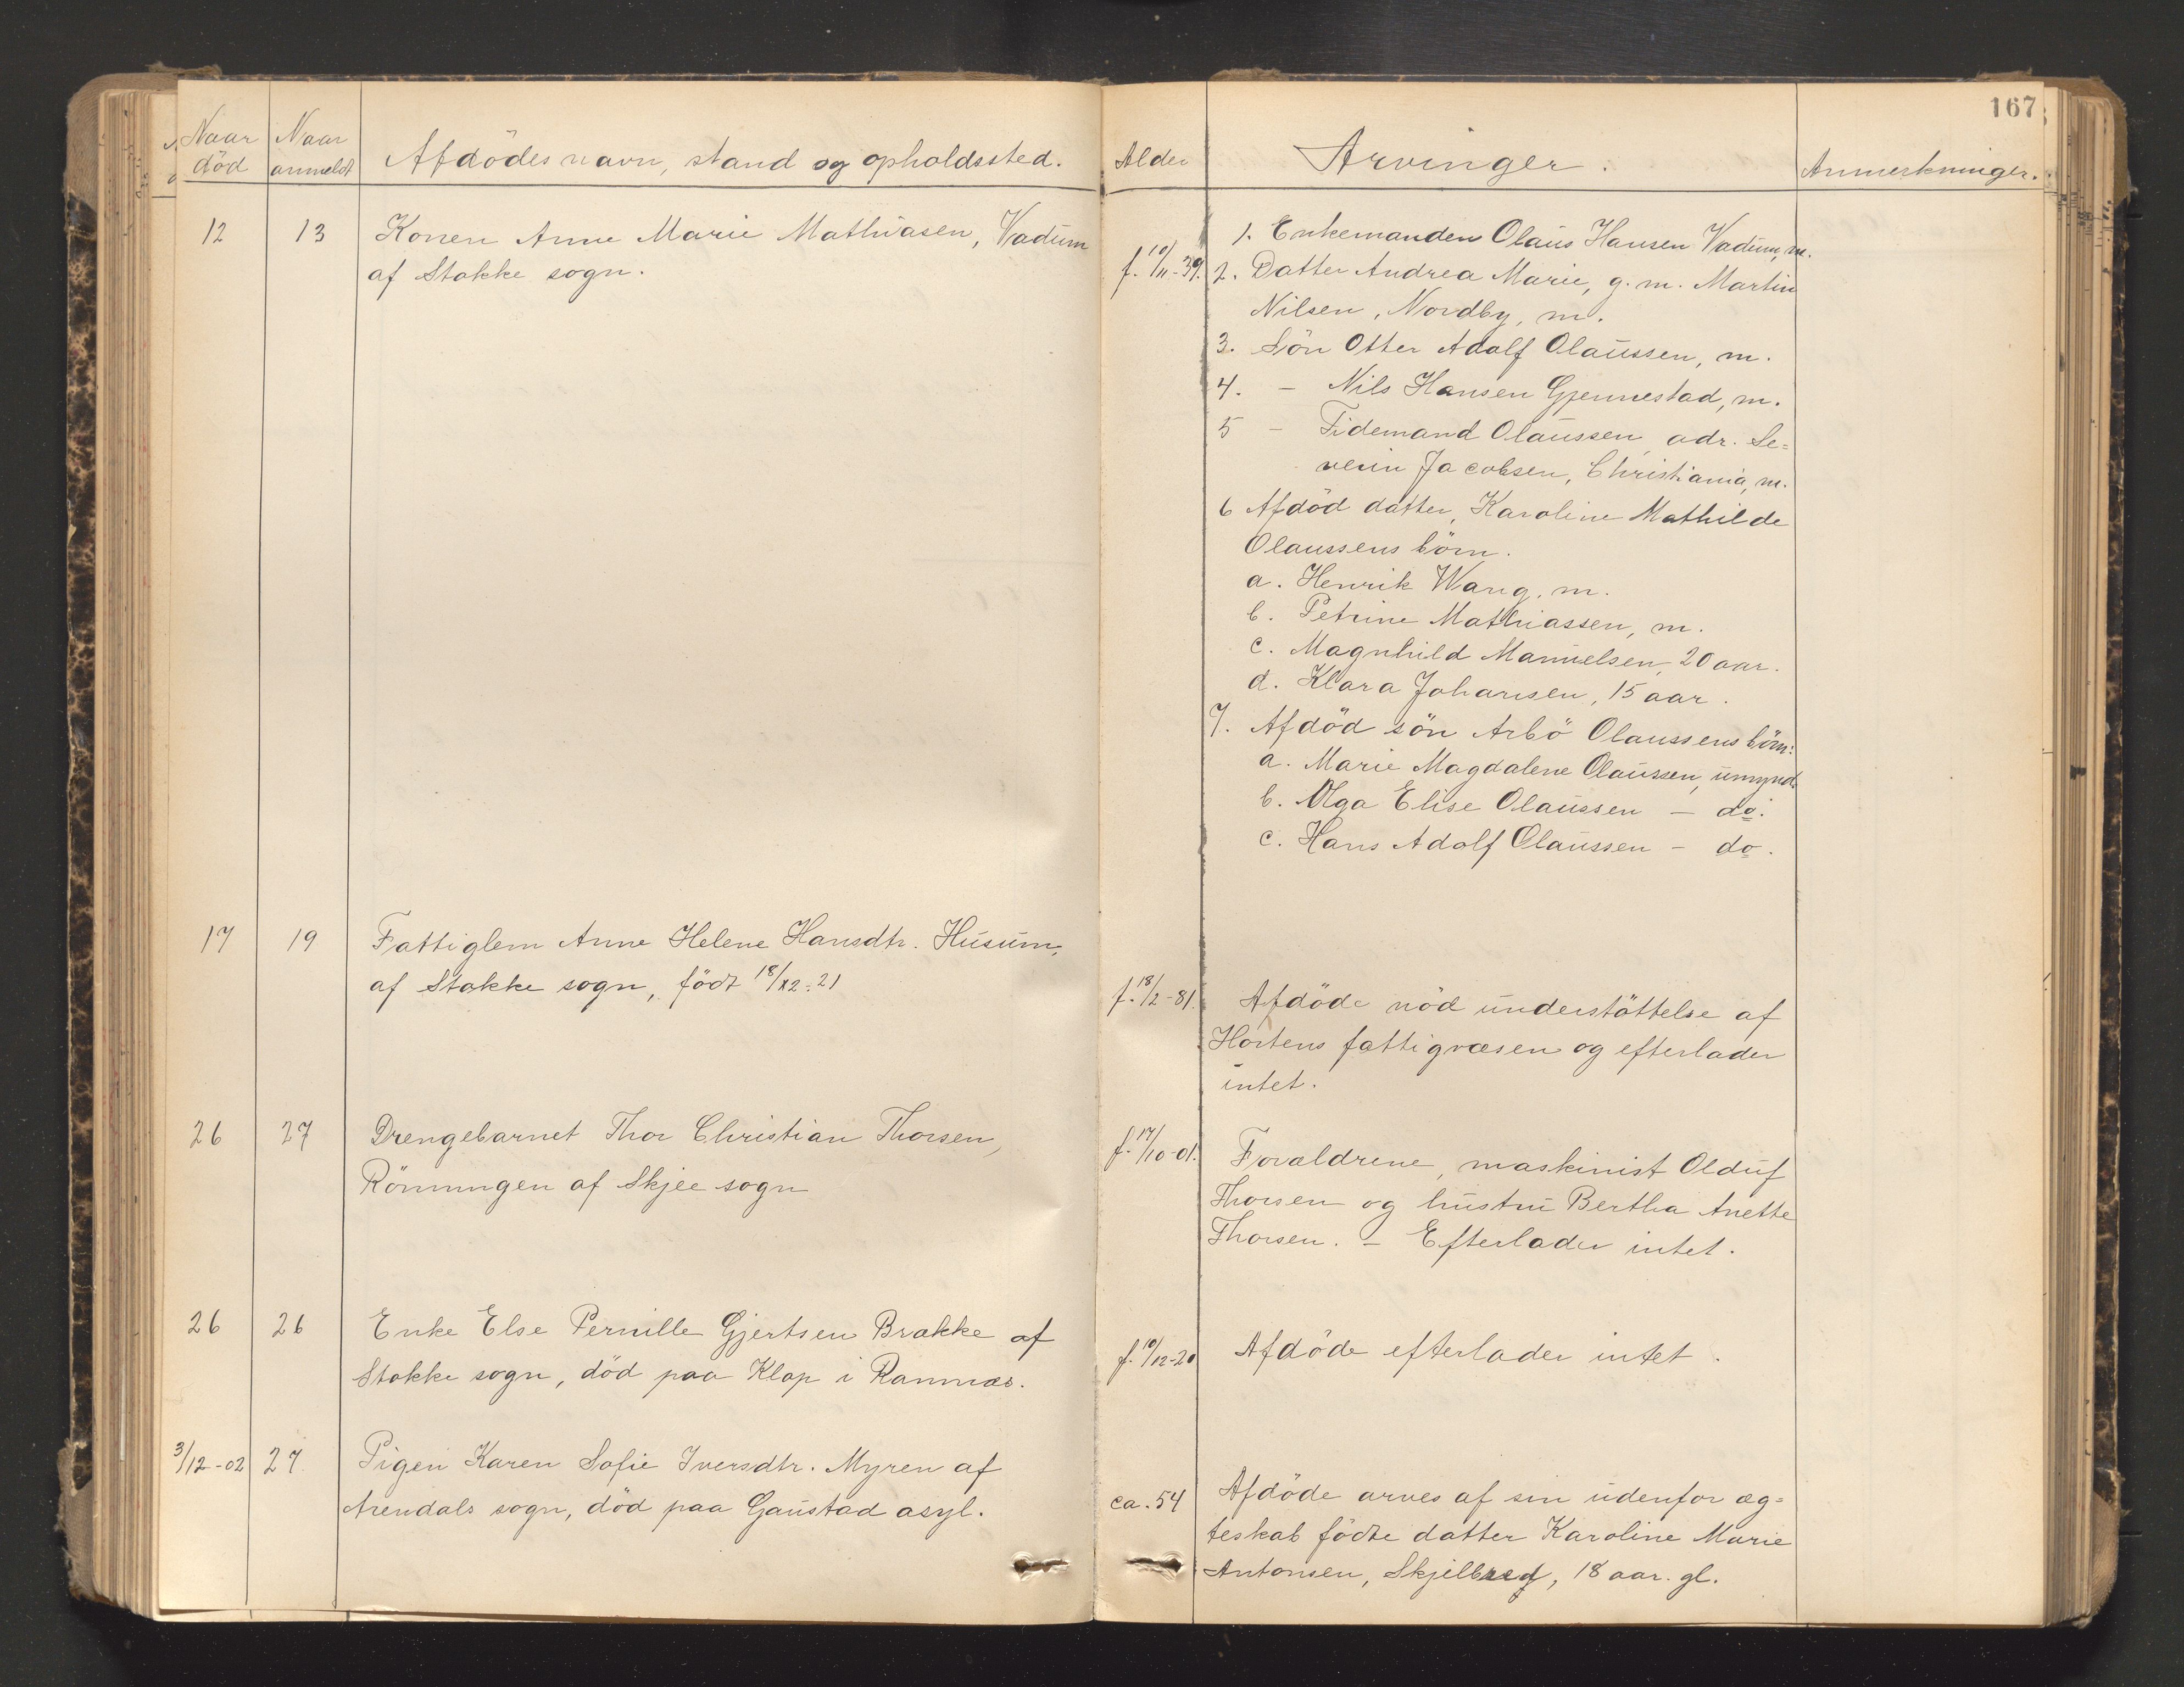 167
Naar død
Naar anmeldt
Afdödes navn, stand og opholdssted.
Alder
Arvinger.
Anmerkninger.
12
13
Konen Anne Marie Mathiasen, Vadum
af Stokke sogn.
f. 10/11-39.
1. Enkemanden Olaus Hansen Vadum, m.
2. Datter Andrea Marie, g. m. Martin
Nilsen, Nordby, m.
3. Sön Otter Adolf Olaussen, m.
4. - Nils Hansen Gjennestad, m.
5 - Tidemand Olaussen, adr. Se=
verin Jacobsen, Christiania, m.
6 Afdöd datter, Karoline Mathilde
Olaussens börn.
a. Henrik Wang, m.
b. Petrine Mathiassen, m.
c. Magnhild Manuelsen, 20 aar.
d. Klara Johansen, 15 aar.
7. Afdöd sön Arbö Olaussens börn:
a. Marie Magdalene Olaussen, umynd.
b. Olga Elise Olaussen - do.
c. Hans Adolf Olaussen - do.
17
19
Fattiglem Anne Helene Hansdtr. Husum,
af Stokke sogn, födt 18/12-21
f. 18/2-81.
Afdöde nöd understöttelse af
Hortens fattigvæsen og efterlader
intet.
26
27
Drengebarnet Thor Christian Thorsen,
Rönningen af Skjee sogn
f. 17/10-01.
Forældrene, maskinist Olduf
Thorsen og hustru Bertha Anette
Thorsen. - Efterlader intet.
26
26
Enke Else Pernille Gjertsen Brække af
Stokke sogn, död paa Klop i Ramnæs.
f. 10/12-20
Afdöde efterlader intet.
3/12-02
27
Pigen Karen Sofie Iversdtr. Myren af
Arendals sogn, död paa Gaustad asyl.
ca. 54
Afdöde arves af sin udenfor æg=
teskab födte datter Karoline Marie
Antonsen, Skjelbreg, 18 aar. gl.